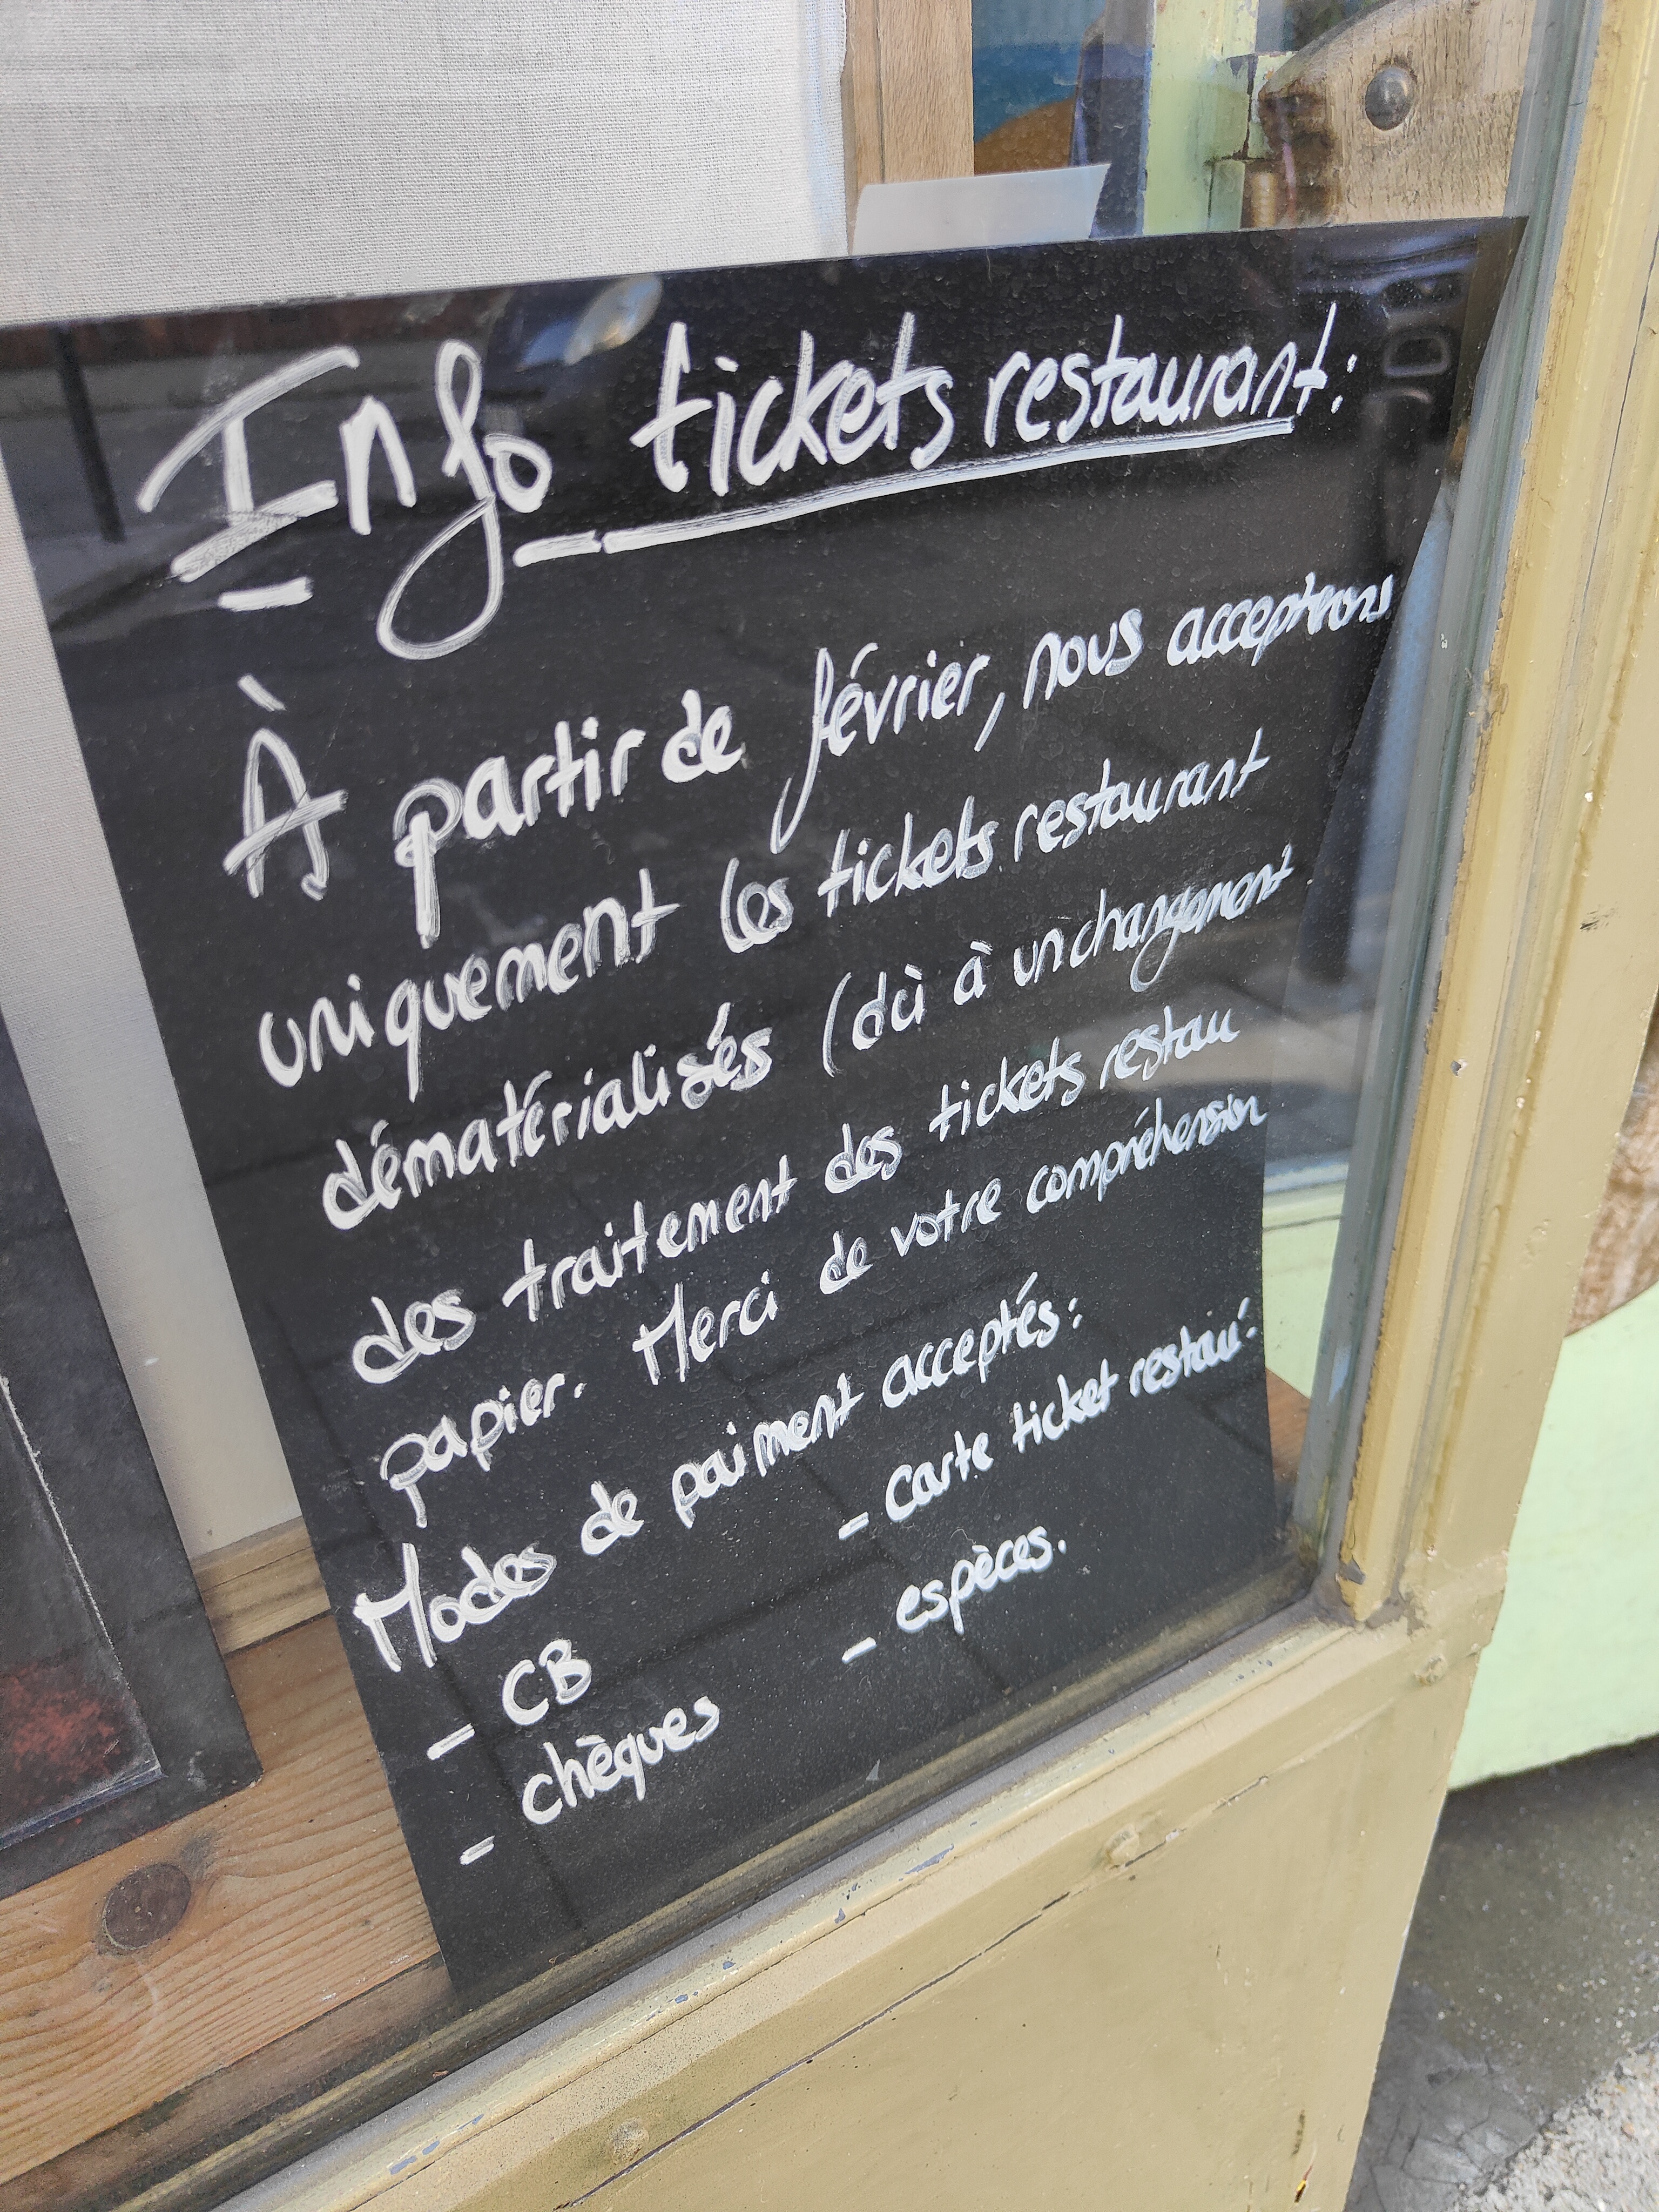 Info tickets restaurant:
À partir de février, nous accepterons
uniquement les tickets restaurant
dématérialisés (dû à un changement
des traitement des tickets restau
papier. Merci de votre compréhension
Modes de paiment acceptés:
- CB - Carte ticket restau.
- chèques - espèces.